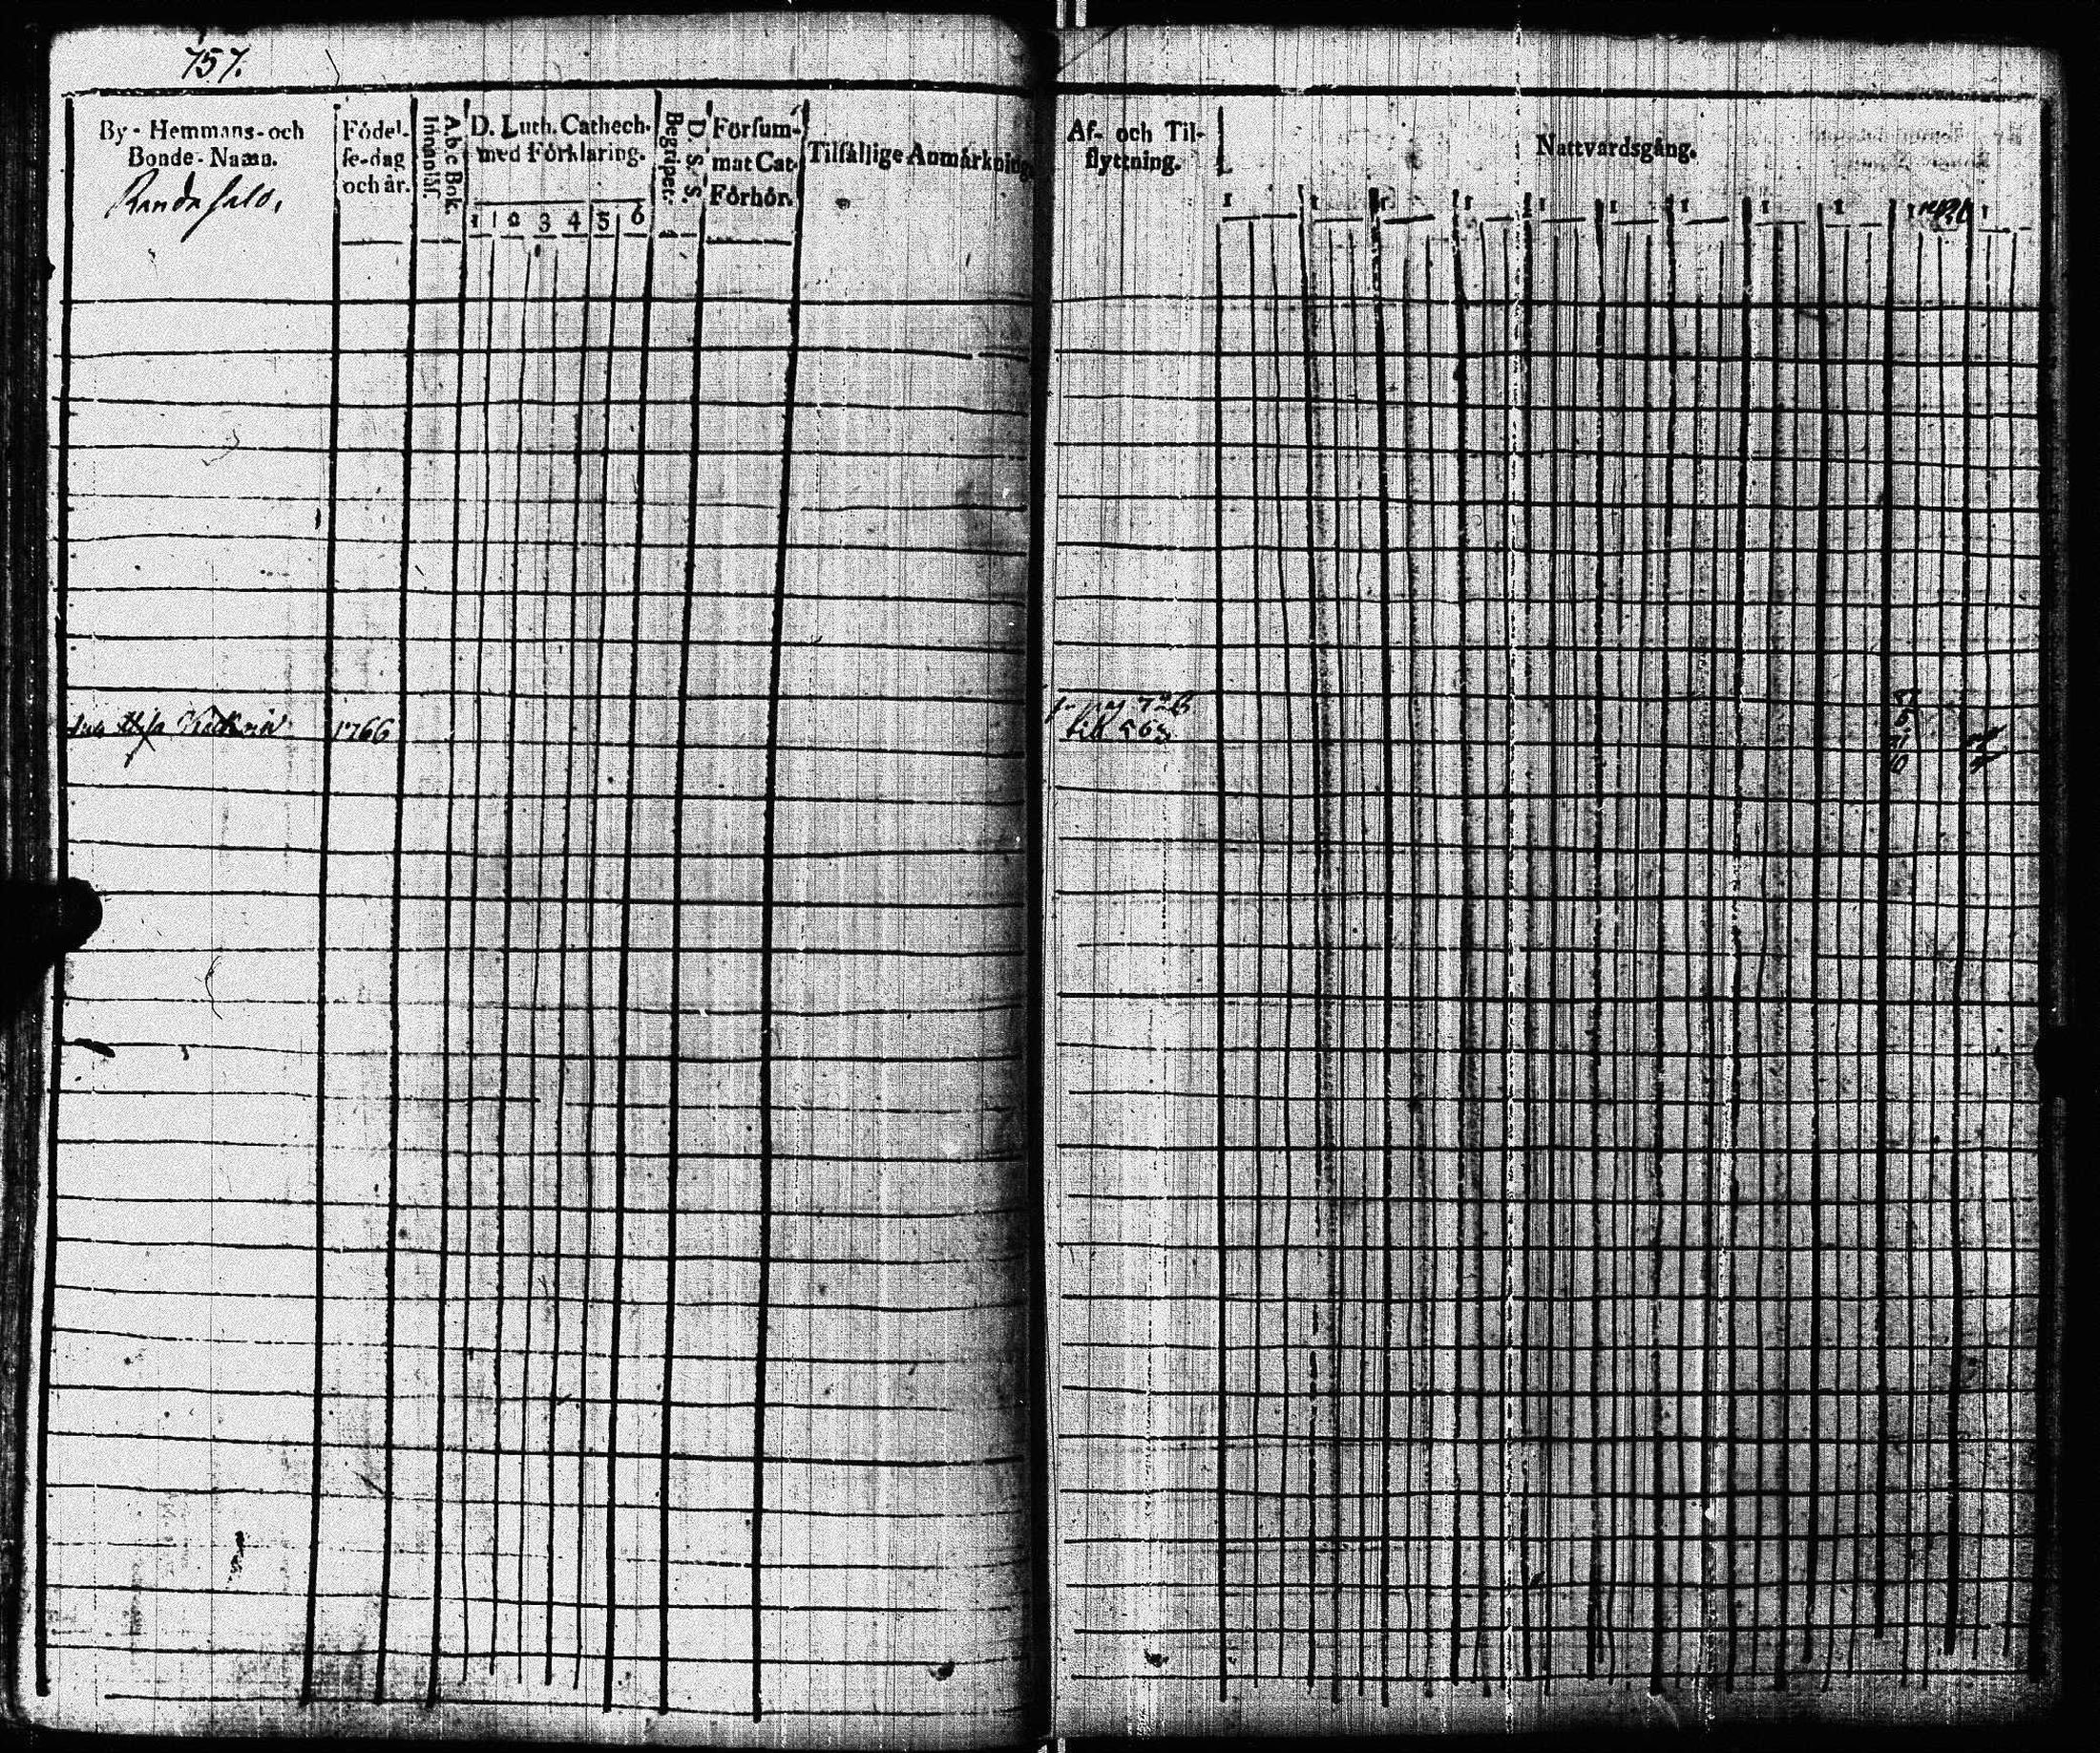 757.
By- Hemmans- och
Bonde- Namn.
Födel-
se-dag
och år.
Innanläs.
Abc Bok.
D. Luth. Cathech.
med Förklaring.
1 2 3 4 5 6
Begriper.
D. S. S.
Försum-
mat Cat.
Förhör.
Tilfällige Anmärkning.
Af- och Til-
flyttning.
Nattvardsgång.
1 1 1 1 1 1 1 1 1 1 1
1766
pag 726
till 565